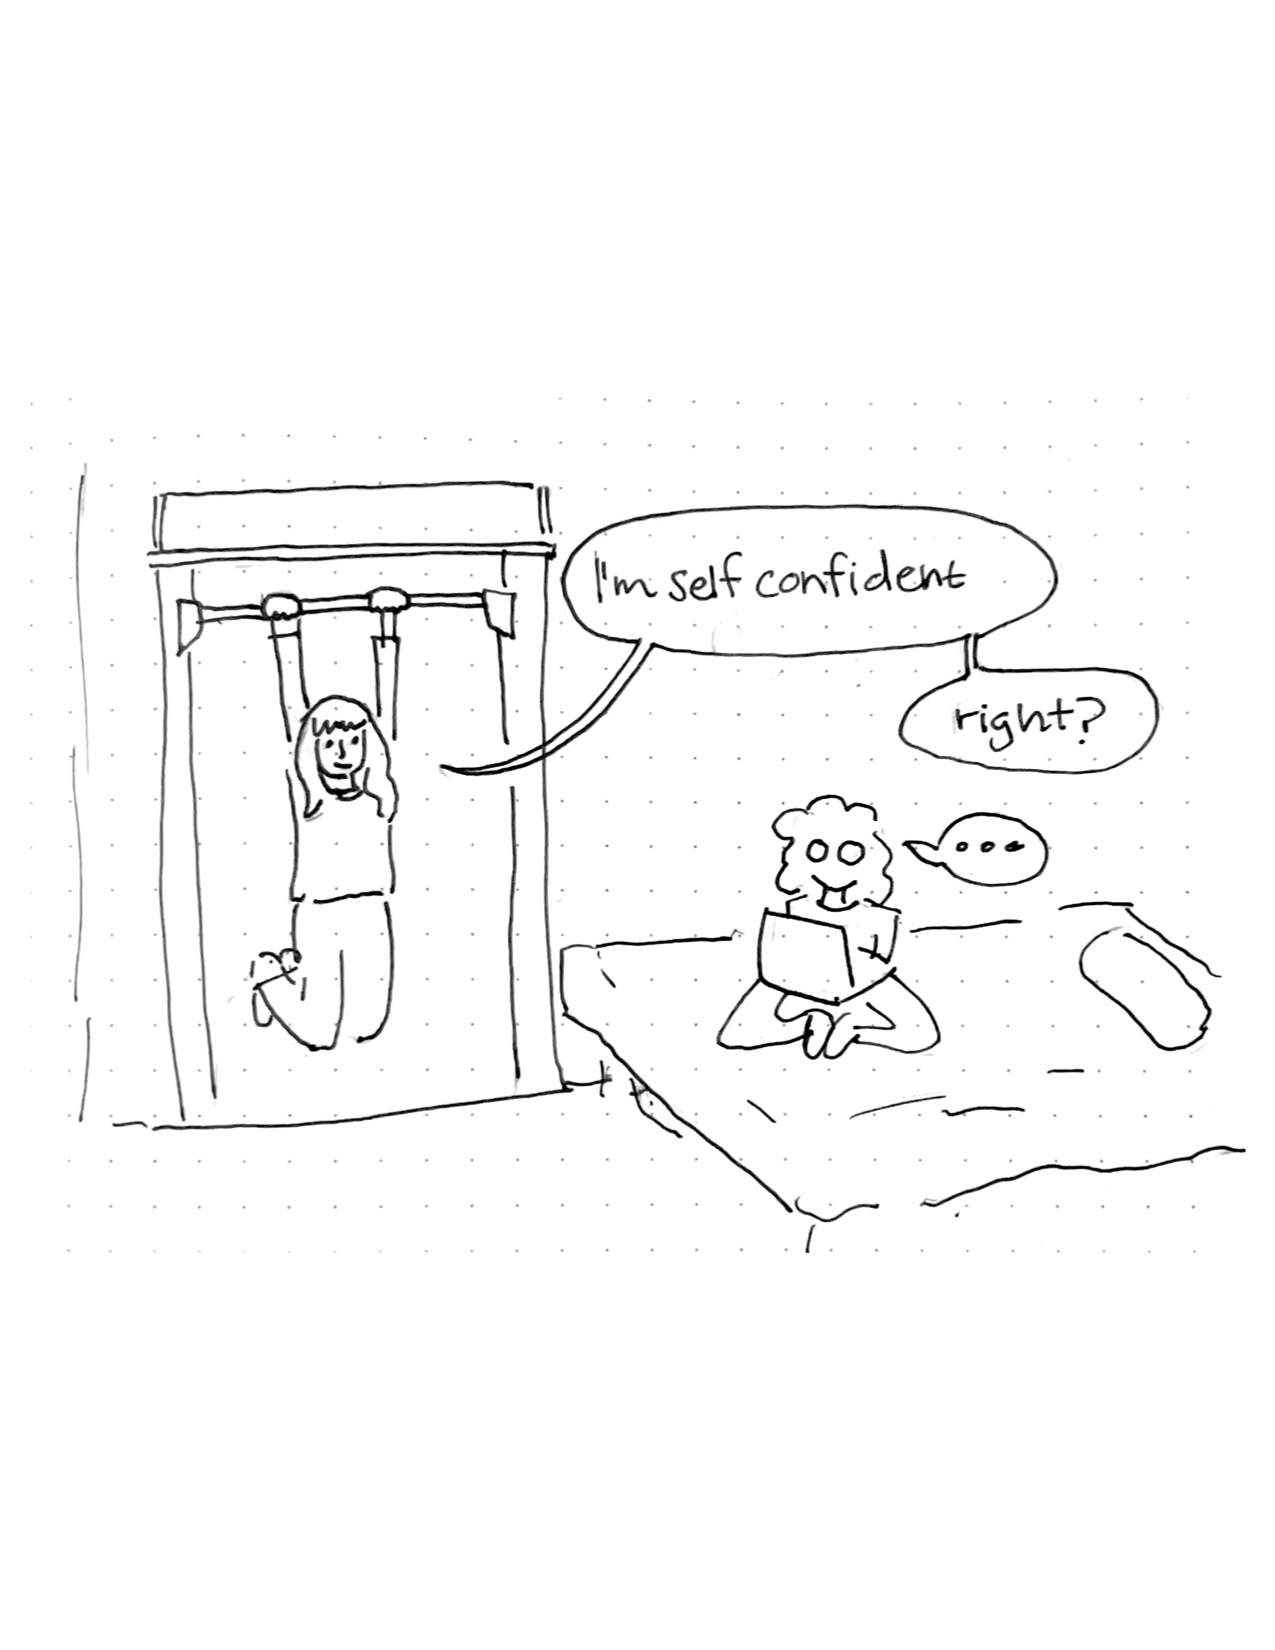 I'm self confident
right?
...